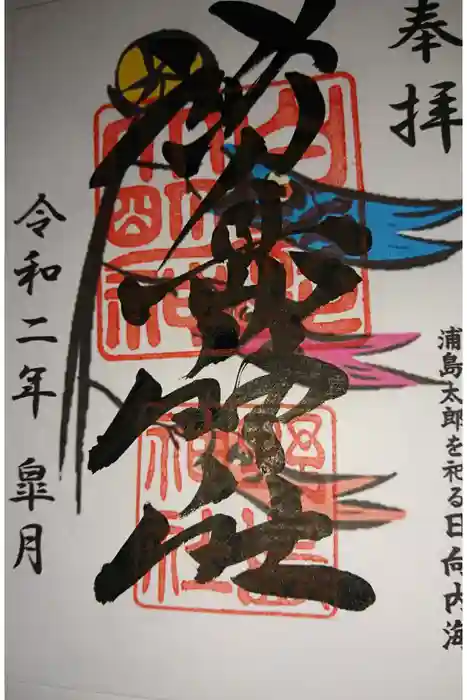 奉拝
浦島太郎を祀る日向内海
野島神社
令和二年 皐月